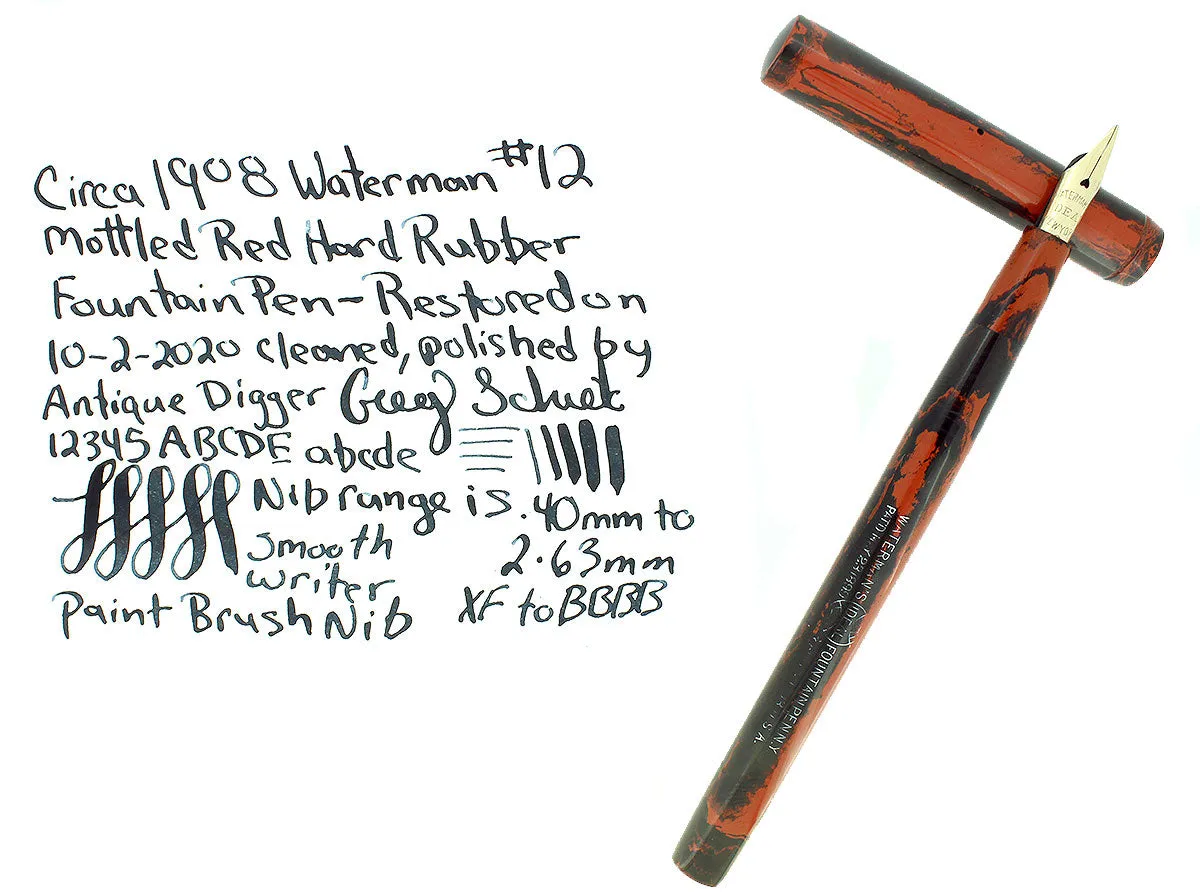 Circa 1908 Waterman #12
Mottled Red Hard Rubber
Fountain Pen - Restored on
10-2-2020 cleaned, polished by
Antique Digger
12345 ABCDE abcde
Nib range is .40mm to
2.63mm
smooth
writer
XF to BBBB
Paint Brush Nib
WATERMAN'S (IDEAL) FOUNTAIN PEN N.Y.